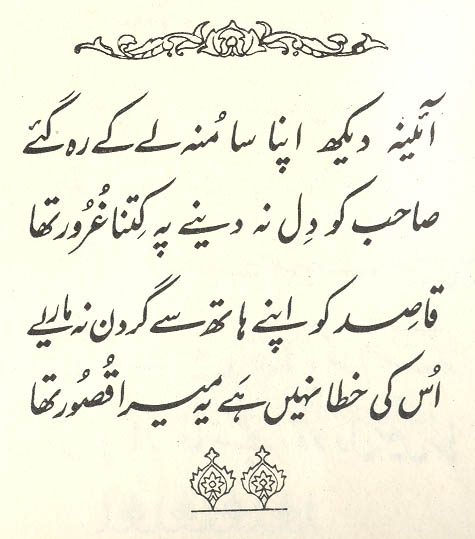 آئینہ دیکھ اپنا سا مُنہ لے کے رہ گئے
صاحب کو دِل نہ دینے پہ کِتنا غُرُور تھا
قاصِد کو اپنے ہاتھ سے گردن نہ ماریے
اُس کی خطا نہیں ہَے یہ میرا قُصُور تھا